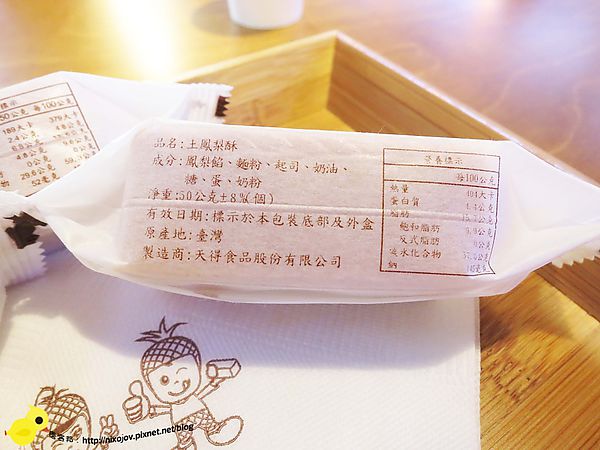 品名:土鳳梨酥
成分:鳳梨餡、麵粉、起司、奶油、
糖、蛋、奶粉
淨重:50公克±8%(個)
有效日期:標示於本包裝底部及外盒
原產地:臺灣
製造商:天得食品股份有限公司
營養標示
每100公克
熱量 404大卡
蛋白質 公克
脂肪 公克
飽和脂肪 公克
反式脂肪 0公克
碳水化合物 公克
鈉
標示
50公克 每100公克
189大卡 379大卡
0公克
52毫克
http://nixojov.pixnet.net/blog